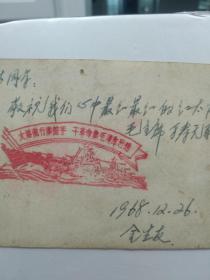 同学:
敬祝我们心中最红最红的红太
毛主席万寿无
大海航行靠舵手 干革命靠毛泽东思想
1968.12.26.